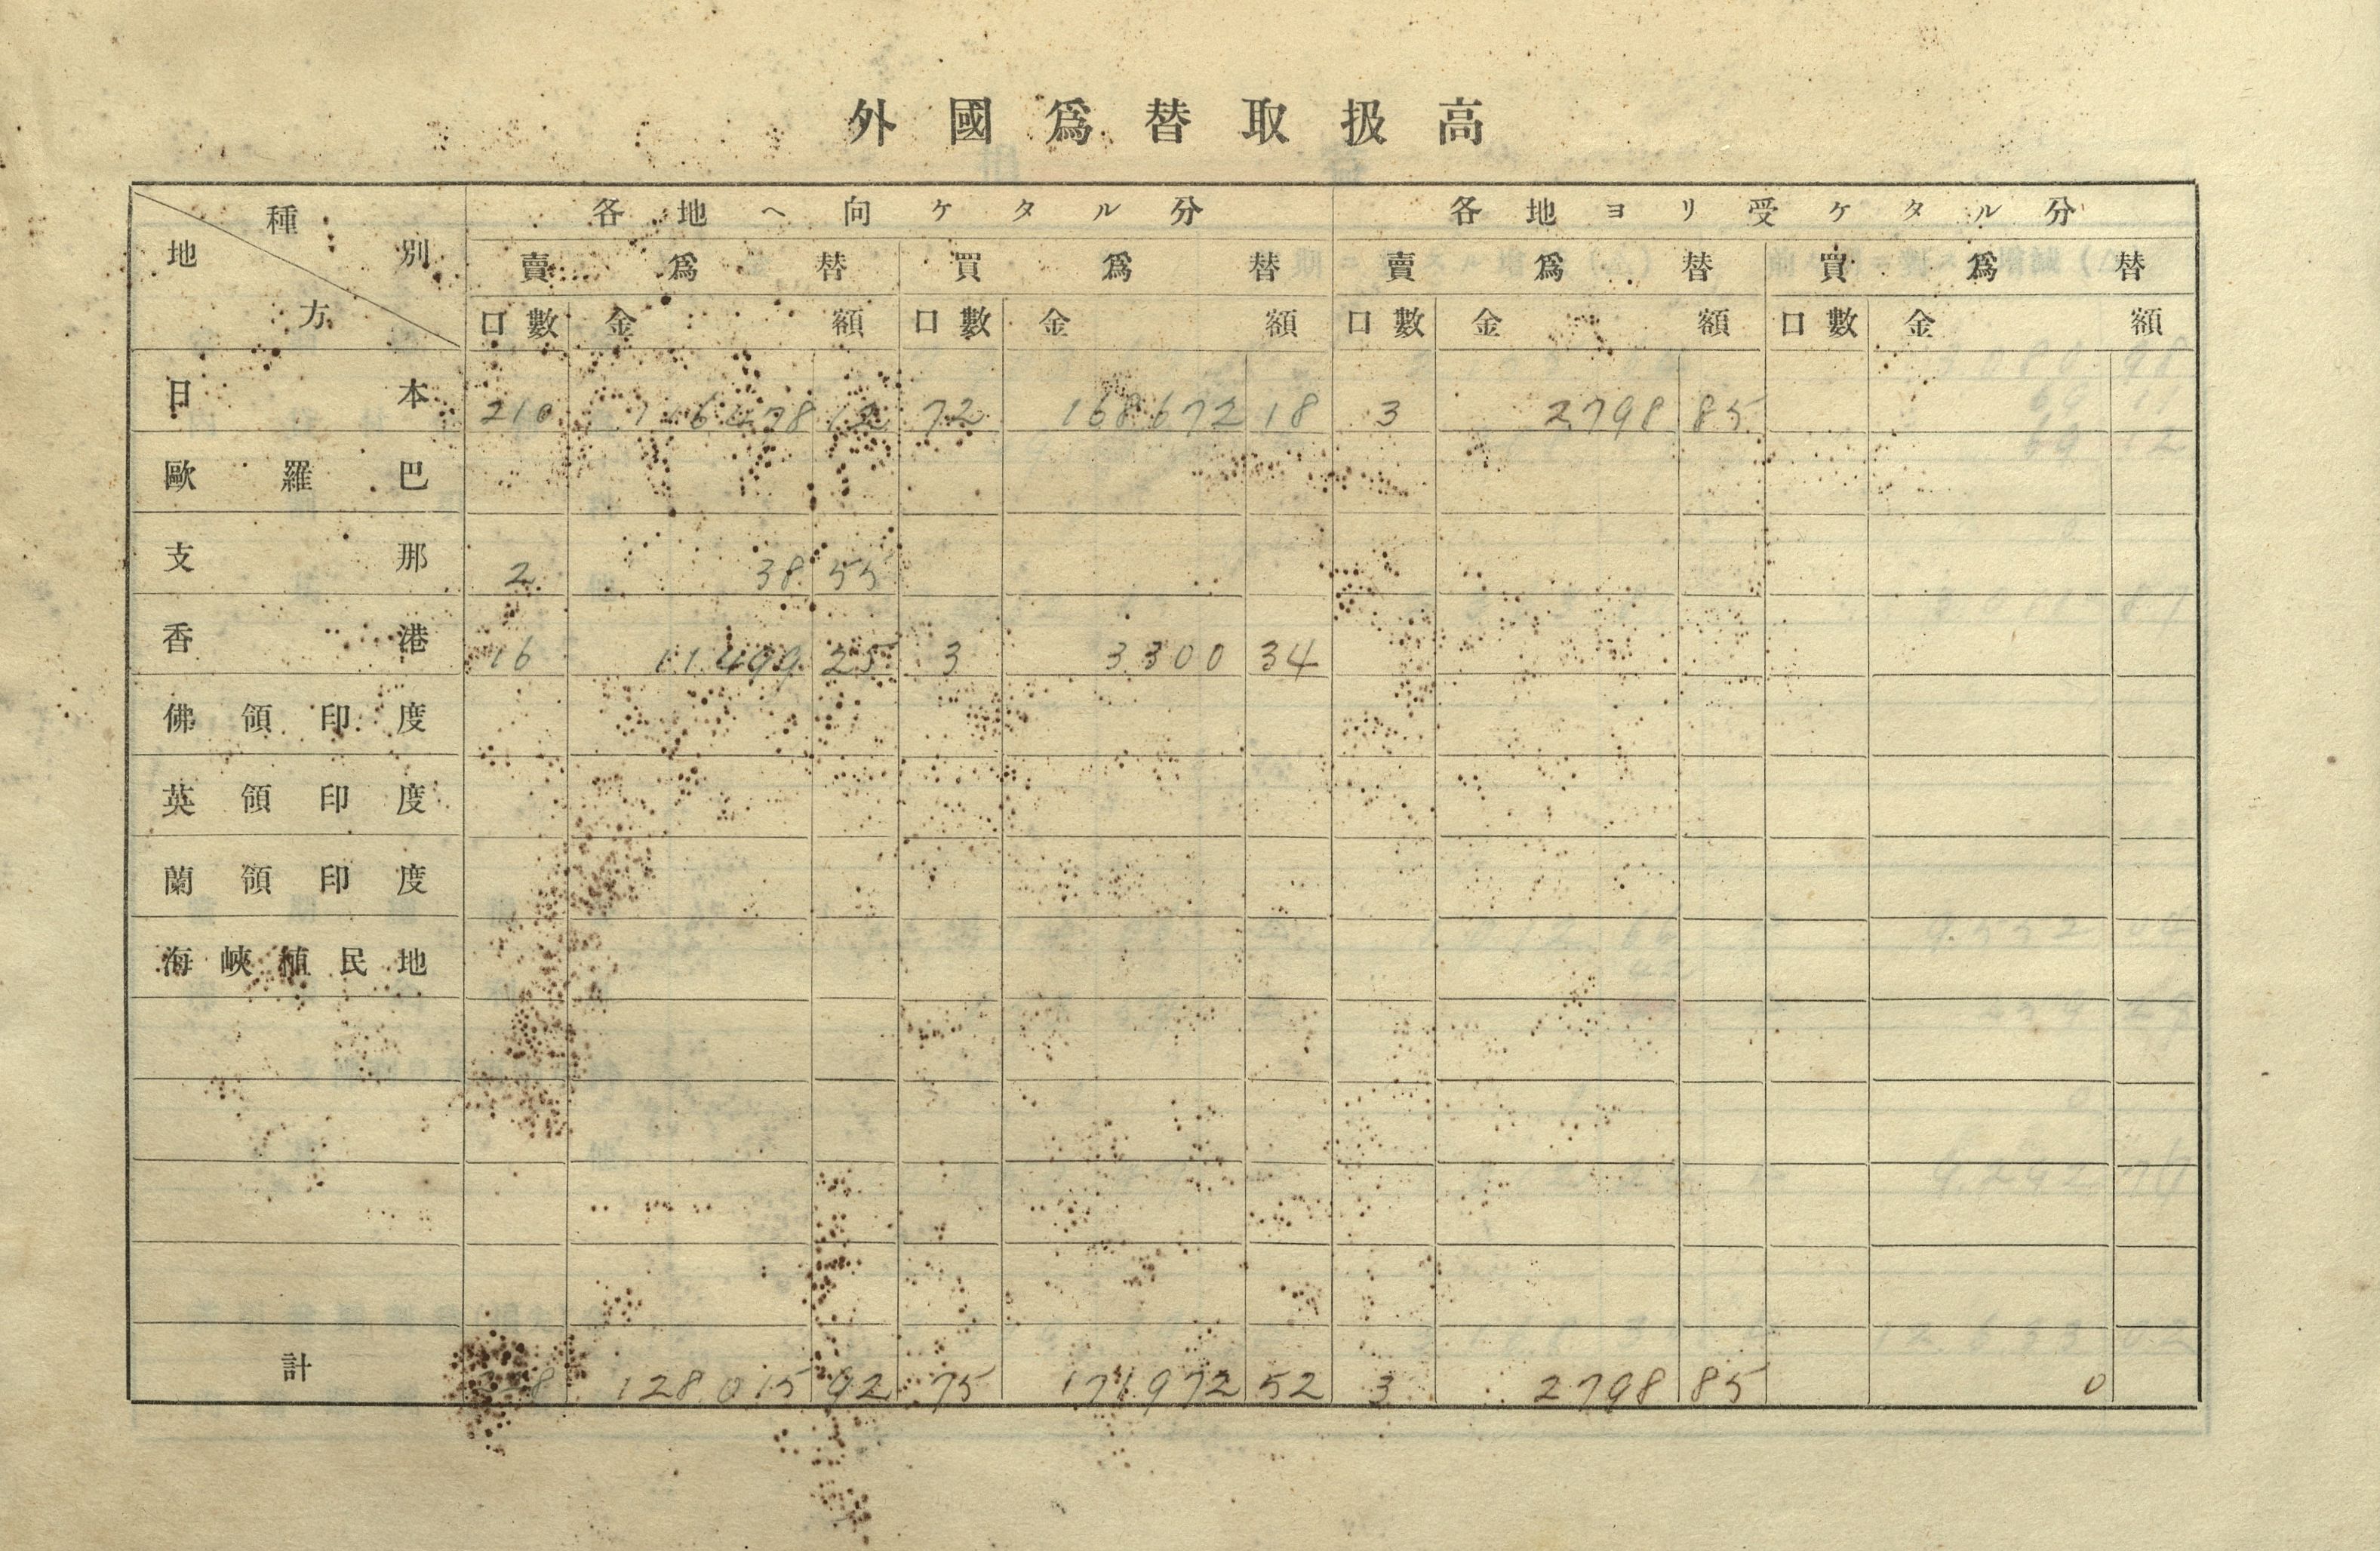 外國爲替取扱高
種別 地方 各地ヘ向ケタル分 各地ヨリ受ケタル分
賣爲替 買爲替 賣爲替 買爲替
口數 金額 口數 金額 口數 金額 口數 金額
日本 210 116478 12 72 168672 18 3 2798 85
歐羅巴
支那 2 38 55
香港 16 11499 25 3 3300 34
佛領印度
英領印度
蘭領印度
海峽植民地
計 228 128015 92 75 171972 52 3 2798 85 0